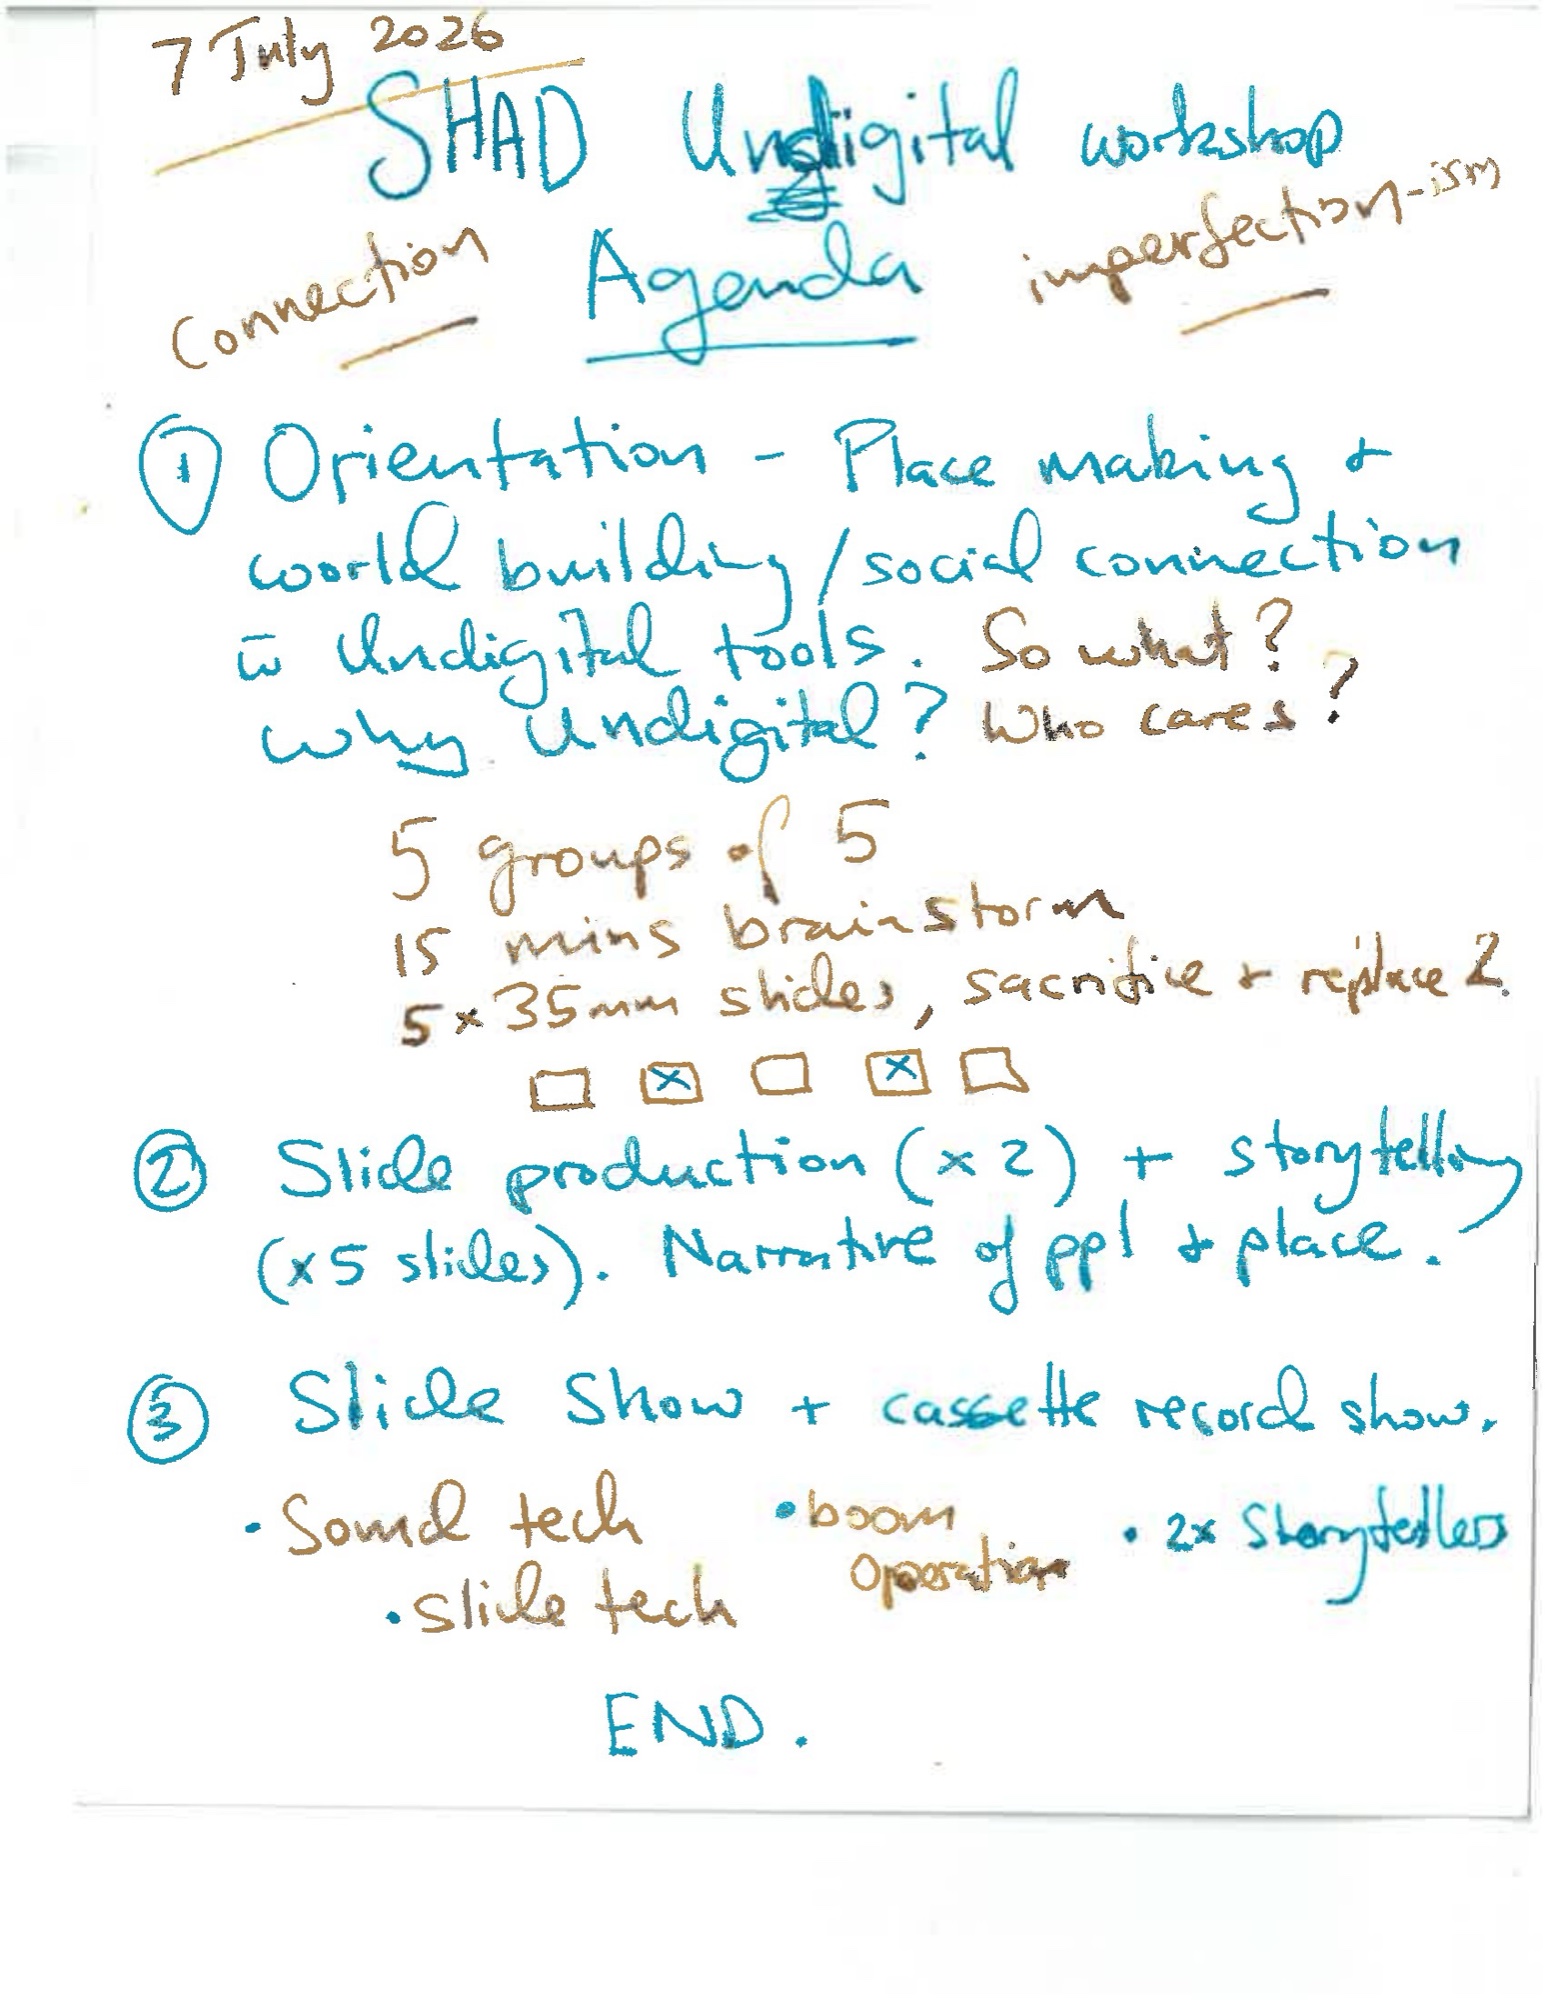 7 July 2026
SHAD Undigital workshop
Connection Agenda imperfection-ism
① Orientation - Place making +
world building / social connection
w̄ Undigital tools. So what?
why Undigital? Who cares?
5 groups of 5
15 mins brainstorm
5 x 35mm slides, sacrifice + replace 2.
x x
② Slide production (x2) + storytelling
(x5 slides). Narrative of ppl + place.
③ Slide Show + cassette record show.
• Sound tech • boom operation • 2x Storytellers
• slide tech
END.